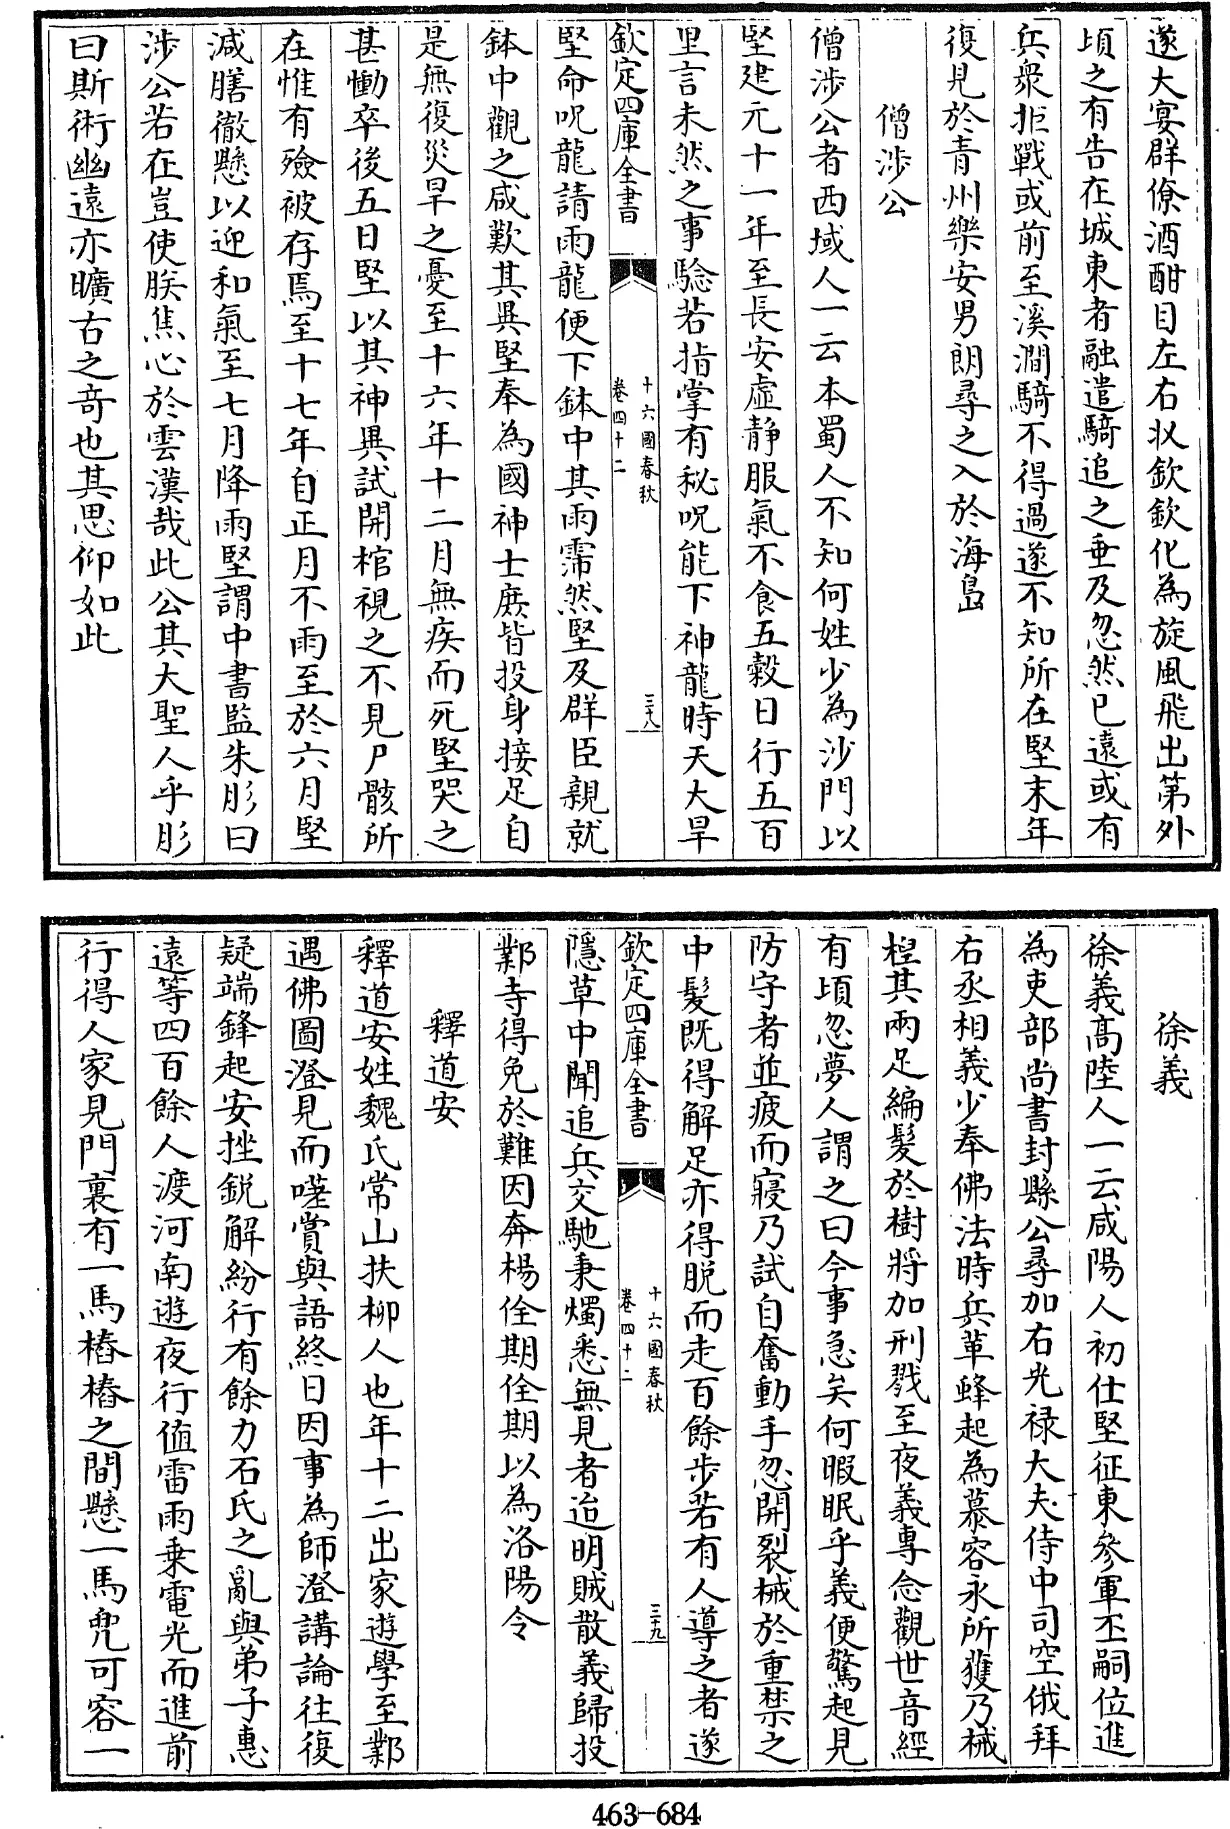 遂大宴群僚酒酣目左右収欽欽化為旋風飛出第外
頃之有告在城東者融遣騎追之垂及忽然已遠或有
兵衆拒戰或前至溪澗騎不得過遂不知所在堅末年
復見於青州樂安男朗尋之入於海島
僧涉公
僧涉公者西域人一云本蜀人不知何姓少為沙門以
堅建元十一年至長安虛静服氣不食五穀日行五百
里言未然之事驗若指掌有秘呪能下神龍時天大旱
欽定四庫全書
十六國春秋
卷四十二
三十八
堅命呪龍請雨龍便下鉢中其雨霈然堅及群臣親就
鉢中觀之咸歎其異堅奉為國神士庶皆投身接足自
是無復災旱之憂至十六年十二月無疾而死堅哭之
甚慟卒後五日堅以其神異試開棺視之不見尸骸所
在惟有殮被存焉至十七年自正月不雨至於六月堅
減膳徹懸以迎和氣至七月降雨堅謂中書監朱肜曰
涉公若在豈使朕焦心於雲漢哉此公其大聖人乎肜
曰斯術幽遠亦曠古之奇也其思仰如此
徐義
徐義髙陸人一云咸陽人初仕堅征東參軍丕嗣位進
為吏部尚書封縣公尋加右光禄大夫侍中司空俄拜
右丞相義少奉佛法時兵革蜂起為慕容永所獲乃械
桎其兩足編髮於樹將加刑戮至夜義專念觀世音經
有頃忽夢人謂之曰今事急矣何暇眠乎義便驚起見
防守者並疲而寢乃試自奮動手忽開裂械於重禁之
中髮既得解足亦得脱而走百餘步若有人導之者遂
欽定四庫全書
十六國春秋
卷四十二
三十九
隱草中聞追兵交馳秉燭悉無見者迨明賊散義歸投
鄴寺得免於難因奔楊佺期佺期以為洛陽令
釋道安
釋道安姓魏氏常山扶柳人也年十二出家遊學至鄴
遇佛圖澄見而嗟賞與語終日因事為師澄講論往復
疑端鋒起安挫鋭解紛行有餘力石氏之亂與弟子惠
遠等四百餘人渡河南遊夜行值雷雨乗電光而進前
行得人家見門裏有一馬樁樁之間懸一馬兠可容一
463-684